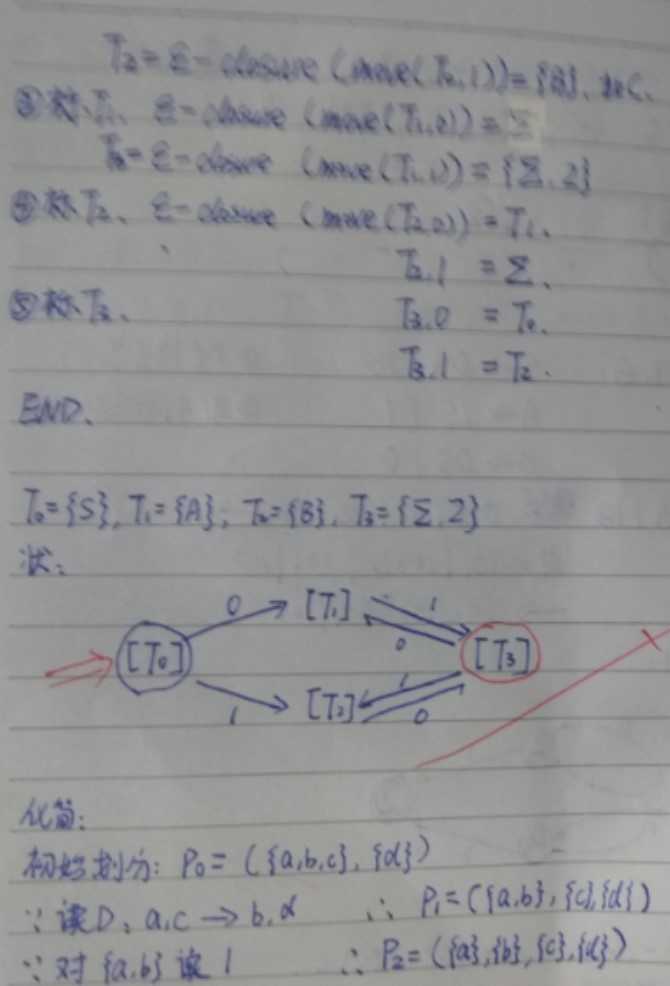 T₂ = ε-closure (move(T₀,1)) = {B}, 加C.
③标T₁、ε-closure (move(T₁,0)) = Σ
T₃ = ε-closure (move(T₁,1)) = {Σ, Z}
④标T₂、ε-closure (move(T₂,0)) = T₁、
T₂.1 = Σ、
⑤标T₃、 T₃.0 = T₀、
T₃.1 = T₂.
END、
T₀={S}, T₁={A}; T₂={B}, T₃={Σ, Z}
状:
0 [T₁] 1
0
[T₀] [T₃]
1
1 [T₂] 0
化简:
初始划分: P₀ = ({a,b,c}, {d})
∵ 读0, a,c → b,d ∴ P₁=({a,b}, {c},{d})
∵ 对 {a,b} 读 1 ∴ P₂=({a},{b},{c},{d})